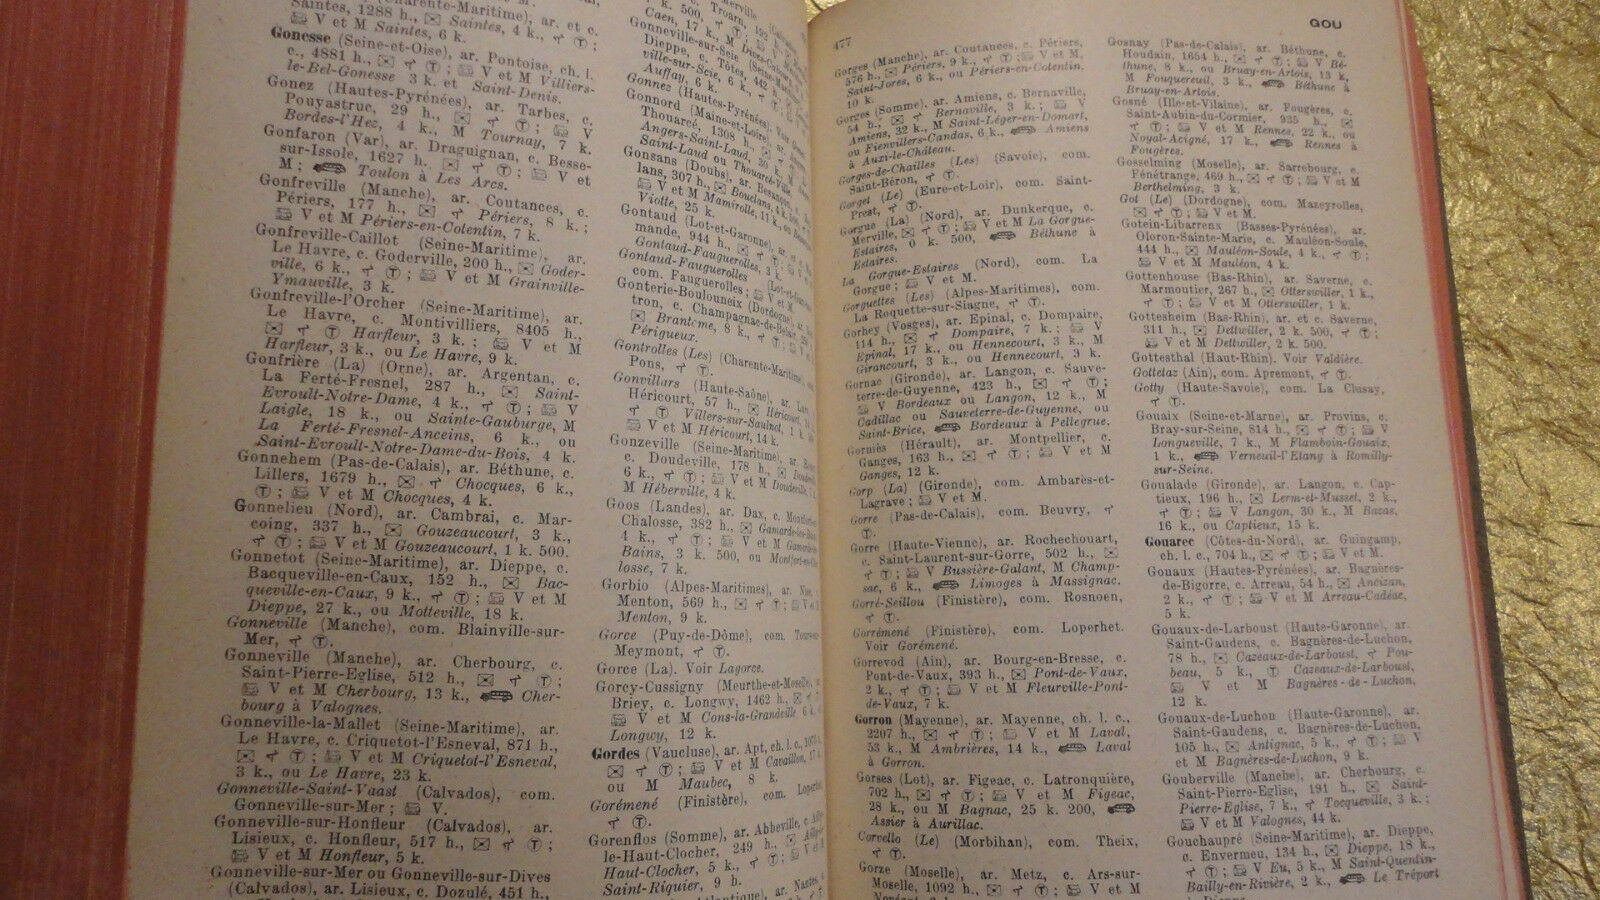 Saintes, 1288 h., ✉ Saintes, 4 k.,
V et M Saintes, 6 k.
Gonesse (Seine-et-Oise), ar. Pontoise, ch. l.
c., 4881 h., ✉ Ⓣ ; V et M Villiers-
le-Bel-Gonesse 3 k. et Saint-Denis.
Gonez (Hautes-Pyrénées), ar. Tarbes, c.
Pouyastruc, 29 h., ✉ Ⓣ ; V
Bordes-l'Hez, 4 k., M Tournay, 7 k.
Gonfaron (Var), ar. Draguignan, c. Besse-
sur-Issole, 1627 h. ✉ Ⓣ ; V et
M ; Toulon à Les Arcs.
Gonfreville (Manche), ar. Coutances, c.
Périers, 177 h., ✉ Périers, 8 k. ;
V et M Périers-en-Cotentin, 7 k.
Gonfreville-Caillot (Seine-Maritime), ar.
Le Havre, c. Goderville, 200 h., ✉ Goder-
ville, 6 k., Ⓣ ; V et M Grainville-
Ymauville, 3 k.
Gonfreville-l'Orcher (Seine-Maritime), ar.
Le Havre, c. Montivilliers, 8405 h.,
✉ Ⓣ Harfleur, 3 k. ; V et M
Harfleur, 3 k., ou Le Havre, 9 k.
Gonfrière (La) (Orne), ar. Argentan, c.
La Ferté-Fresnel, 287 h., ✉ Saint-
Evroult-Notre-Dame, 4 k., Ⓣ ; V
Laigle, 18 k., ou Sainte-Gauburge, M
La Ferté-Fresnel-Anceins, 6 k., ou
Saint-Evroult-Notre-Dame-du-Bois, 4 k.
Gonnehem (Pas-de-Calais), ar. Béthune, c.
Lillers, 1679 h., ✉ Chocques, 6 k.,
Ⓣ ; V et M Chocques, 4 k.
Gonnelieu (Nord), ar. Cambrai, c. Mar-
coing, 337 h., ✉ Gouzeaucourt, 3 k.,
Ⓣ ; V et M Gouzeaucourt, 1 k. 500.
Gonnetot (Seine-Maritime), ar. Dieppe, c.
Bacqueville-en-Caux, 152 h., ✉ Bac-
queville-en-Caux, 9 k., Ⓣ ; V et M
Dieppe, 27 k., ou Motteville, 18 k.
Gonneville (Manche), com. Blainville-sur-
Mer, Ⓣ.
Gonneville (Manche), ar. Cherbourg, c.
Saint-Pierre-Eglise, 512 h., ✉ Ⓣ ;
V et M Cherbourg, 13 k., Cher-
bourg à Valognes.
Gonneville-la-Mallet (Seine-Maritime), ar.
Le Havre, c. Criquetot-l'Esneval, 871 h.,
✉ Ⓣ ; V et M Criquetot-l'Esneval,
3 k., ou Le Havre, 23 k.
Gonneville-Saint-Vaast (Calvados), com.
Gonneville-sur-Mer ; V.
Gonneville-sur-Honfleur (Calvados), ar.
Lisieux, c. Honfleur, 517 h., ✉ Ⓣ ;
V et M Honfleur, 5 k.
Gonneville-sur-Mer ou Gonneville-sur-Dives
(Calvados), ar. Lisieux, c. Dozulé, 451 h.,
Gonneville-sur-Scie (Seine-
Dieppe, c. Tôtes, 442
ville-sur-Scie, 6 k.,
Auffay, 6 k.
Gonnez (Hautes-Pyrénées). Voir
Gonnord (Maine-et-Loire),
Thouarcé, 1308 h.,
Angers-Saint-Laud, 30
Saint-Laud ou Thouarcé-Ville,
Gonsans (Doubs), ar. Besançon,
lans, 307 h., ✉ Bouclans, 4 k. 500,
V et M Mamirolle, 11 k., ou
Viotte, 25 k.
Gontaud (Lot-et-Garonne), ar.
mande, 944 h., ✉
Gontaud-Fauguerolles, 3 k.
Gontaud-Fauguerolles (Lot-et-
com. Fauguerolles ; V et M.
Gonterie-Boulouneix (Dordogne),
tron, c. Champagnac-de-Belair,
✉ Brantôme, 8 k.,
Périgueux.
Gontrolles (Les) (Charente-Maritime),
Pons, Ⓣ.
Gonvillars (Haute-Saône), ar. Lure,
Héricourt, 57 h., ✉ Héricourt,
Ⓣ Villers-sur-Saulnot, 1 k.
V et M Héricourt, 14 k.
Gonzeville (Seine-Maritime), ar.
c. Doudeville, 178 h., ✉
6 k., Ⓣ ; V et M Doudeville,
M Héberville, 4 k.
Goos (Landes), ar. Dax, c. Montfort-
Chalosse, 382 h., ✉ Gamarde-les-Bains,
4 k., Ⓣ ; V et M Gamarde-
Bains, 3 k. 500, ou Montfort-en-Cha-
losse, 7 k.
Gorbio (Alpes-Maritimes), ar. Nice,
Menton, 569 h., ✉ Ⓣ ; V et
Menton, 9 k.
Gorce (Puy-de-Dôme), com. Tours-sur-
Meymont, Ⓣ.
Gorce (La). Voir Lagorce.
Gorcy-Cussigny (Meurthe-et-Moselle),
Briey, c. Longwy, 1462 h., ✉
V et M Cons-la-Grandville, 6 k.,
Longwy, 12 k.
Gordes (Vaucluse), ar. Apt, ch. l. c.,
✉ Ⓣ ; V et M Cavaillon,
ou M Maubec, 8 k.
Gorémené (Finistère), com. Loperhet,
Ⓣ.
Gorenflos (Somme), ar. Abbeville, c. Ailly-
le-Haut-Clocher, 249 h., ✉
Haut-Clocher, 5 k., Ⓣ ; V et
Saint-Riquier, 9 h.
477
GOU
Gorges (Manche), ar. Coutances, c. Périers,
576 h., ✉ Périers, 9 k., Ⓣ ; V et M,
Saint-Jores, 6 k., ou Périers-en-Cotentin,
10 k.
Gorges (Somme), ar. Amiens, c. Bernaville,
54 h., ✉ Bernaville, 3 k. ; V
Amiens, 32 k., M Saint-Léger-en-Domart,
ou Fienvillers-Candas, 6 k., Amiens
à Auxi-le-Château.
Gorges-de-Chailles (Les) (Savoie), com.
Saint-Béron, Ⓣ.
Gorget (Le) (Eure-et-Loir), com. Saint-
Prest, Ⓣ.
Gorgue (La) (Nord), ar. Dunkerque, c.
Merville, ✉ Ⓣ ; V et M La Gorgue-
Estaires, 0 k. 500, Béthune à
Estaires.
La Gorgue-Estaires (Nord), com. La
Gorgue ; V et M.
Gorguettes (Les) (Alpes-Maritimes), com.
La Roquette-sur-Siagne, Ⓣ.
Gorhey (Vosges), ar. Epinal, c. Dompaire,
114 h., ✉ Dompaire, 7 k. ; V
Epinal, 17 k., ou Hennecourt, 3 k., M
Girancourt, 3 k., ou Hennecourt, 3 k.
Gornac (Gironde), ar. Langon, c. Sauve-
terre-de-Guyenne, 423 h., ✉ Ⓣ ;
V Bordeaux ou Langon, 12 k., M
Cadillac ou Sauveterre-de-Guyenne, ou
Saint-Brice, Bordeaux à Pellegrue.
Gorniès (Hérault), ar. Montpellier, c.
Ganges, 163 h., ✉ Ⓣ ; V et M
Ganges, 12 k.
Gorp (La) (Gironde), com. Ambarès-et-
Lagrave ; V et M.
Gorre (Pas-de-Calais), com. Beuvry,
Ⓣ.
Gorre (Haute-Vienne), ar. Rochechouart,
c. Saint-Laurent-sur-Gorre, 502 h., ✉
Ⓣ ; V Bussière-Galant, M Champ-
sac, 6 k., Limoges à Massignac.
Gorré-Seillou (Finistère), com. Rosnoen,
Ⓣ.
Gorrémené (Finistère), com. Loperhet.
Voir Gorémené.
Gorrevod (Ain), ar. Bourg-en-Bresse, c.
Pont-de-Vaux, 393 h., ✉ Pont-de-Vaux,
2 k., Ⓣ ; V et M Fleurville-Pont-
de-Vaux, 7 k.
Gorron (Mayenne), ar. Mayenne, ch. l. c.,
2207 h., ✉ Ⓣ ; V et M Laval,
53 k., M Ambrières, 14 k., Laval
à Gorron.
Gorses (Lot), ar. Figeac, c. Latronquière,
702 h., ✉ Ⓣ ; V et M Figeac,
28 k., ou M Bagnac, 25 k. 200,
Assier à Aurillac.
Corvello (Le) (Morbihan), com. Theix,
Ⓣ.
Gorze (Moselle), ar. Metz, c. Ars-sur-
Moselle, 1092 h., ✉ Ⓣ ; V et M
Gosnay (Pas-de-Calais), ar. Béthune, c.
Houdain, 1654 h., ✉ Ⓣ ; V Bé-
thune, 8 k., ou Bruay-en-Artois, 13 k,
M Fouquereuil, 3 k., Béthune à
Bruay-en-Artois.
Gosné (Ille-et-Vilaine), ar. Fougères, c.
Saint-Aubin-du-Cormier, 935 h., ✉
Ⓣ ; V et M Rennes, 22 k., ou
Noyal-Acigné, 17 k., Rennes à
Fougères.
Gosselming (Moselle), ar. Sarrebourg, c.
Fénétrange, 469 h., ✉ Ⓣ ; V et M
Berthelming, 3 k.
Got (Le) (Dordogne), com. Mazeyrolles,
✉ Ⓣ ; V et M.
Gotein-Libarrenx (Basses-Pyrénées), ar.
Oloron-Sainte-Marie, c. Mauléon-Soule,
444 h., ✉ Mauléon-Soule, 4 k., Ⓣ ;
V et M Mauléon, 4 k.
Gottenhouse (Bas-Rhin), ar. Saverne, c.
Marmoutier, 267 h., ✉ Otterswiller, 1 k.,
Ⓣ ; V et M Otterswiller, 1 k.
Gottesheim (Bas-Rhin), ar. et c. Saverne,
311 h., ✉ Dettwiller, 2 k. 500, Ⓣ ;
V et M Dettwiller, 2 k. 500.
Gottesthal (Haut-Rhin). Voir Valdière.
Gottetaz (Ain), com. Apremont, Ⓣ.
Gotty (Haute-Savoie), com. La Clusay,
Ⓣ.
Gouaix (Seine-et-Marne), ar. Provins, c.
Bray-sur-Seine, 814 h., ✉ Ⓣ ; V
Longueville, 7 k., M Flamboin-Gouaix,
1 k., Verneuil-l'Etang à Romilly-
sur-Seine.
Goualade (Gironde), ar. Langon, c. Cap-
tieux, 196 h., ✉ Lerm-et-Musset, 2 k.,
Ⓣ ; V Langon, 30 k., M Bazas,
16 k., ou Captieux, 15 k.
Gouarec (Côtes-du-Nord), ar. Guingamp,
ch. l. c., 704 h., ✉ Ⓣ ; V et M.
Gouaux (Hautes-Pyrénées), ar. Bagnères-
de-Bigorre, c. Arreau, 54 h., ✉ Ancizan,
2 k., Ⓣ ; V et M Arreau-Cadéac,
5 k.
Gouaux-de-Larboust (Haute-Garonne), ar.
Saint-Gaudens, c. Bagnères-de-Luchon,
78 h., ✉ Cazeaux-de-Larboust, Pou-
beau, 5 k., Ⓣ Cazeaux-de-Larboust,
V et M Bagnères-de-Luchon,
12 k.
Gouaux-de-Luchon (Haute-Garonne), ar.
Saint-Gaudens, c. Bagnères-de-Luchon,
105 h., ✉ Antignac, 5 k., Ⓣ ; V
et M Bagnères-de-Luchon, 9 k.
Gouberville (Manche), ar. Cherbourg, c.
Saint-Pierre-Eglise, 191 h., ✉ Saint-
Pierre-Eglise, 7 k., Tocqueville, 3 k. ;
V et M Valognes, 44 k.
Gouchaupré (Seine-Maritime), ar. Dieppe,
c. Envermeu, 134 h., ✉ Dieppe, 18 k.,
Ⓣ ; V Eu, 5 k., M Saint-Quentin-
Bailly-en-Rivière, 2 k., Le Tréport